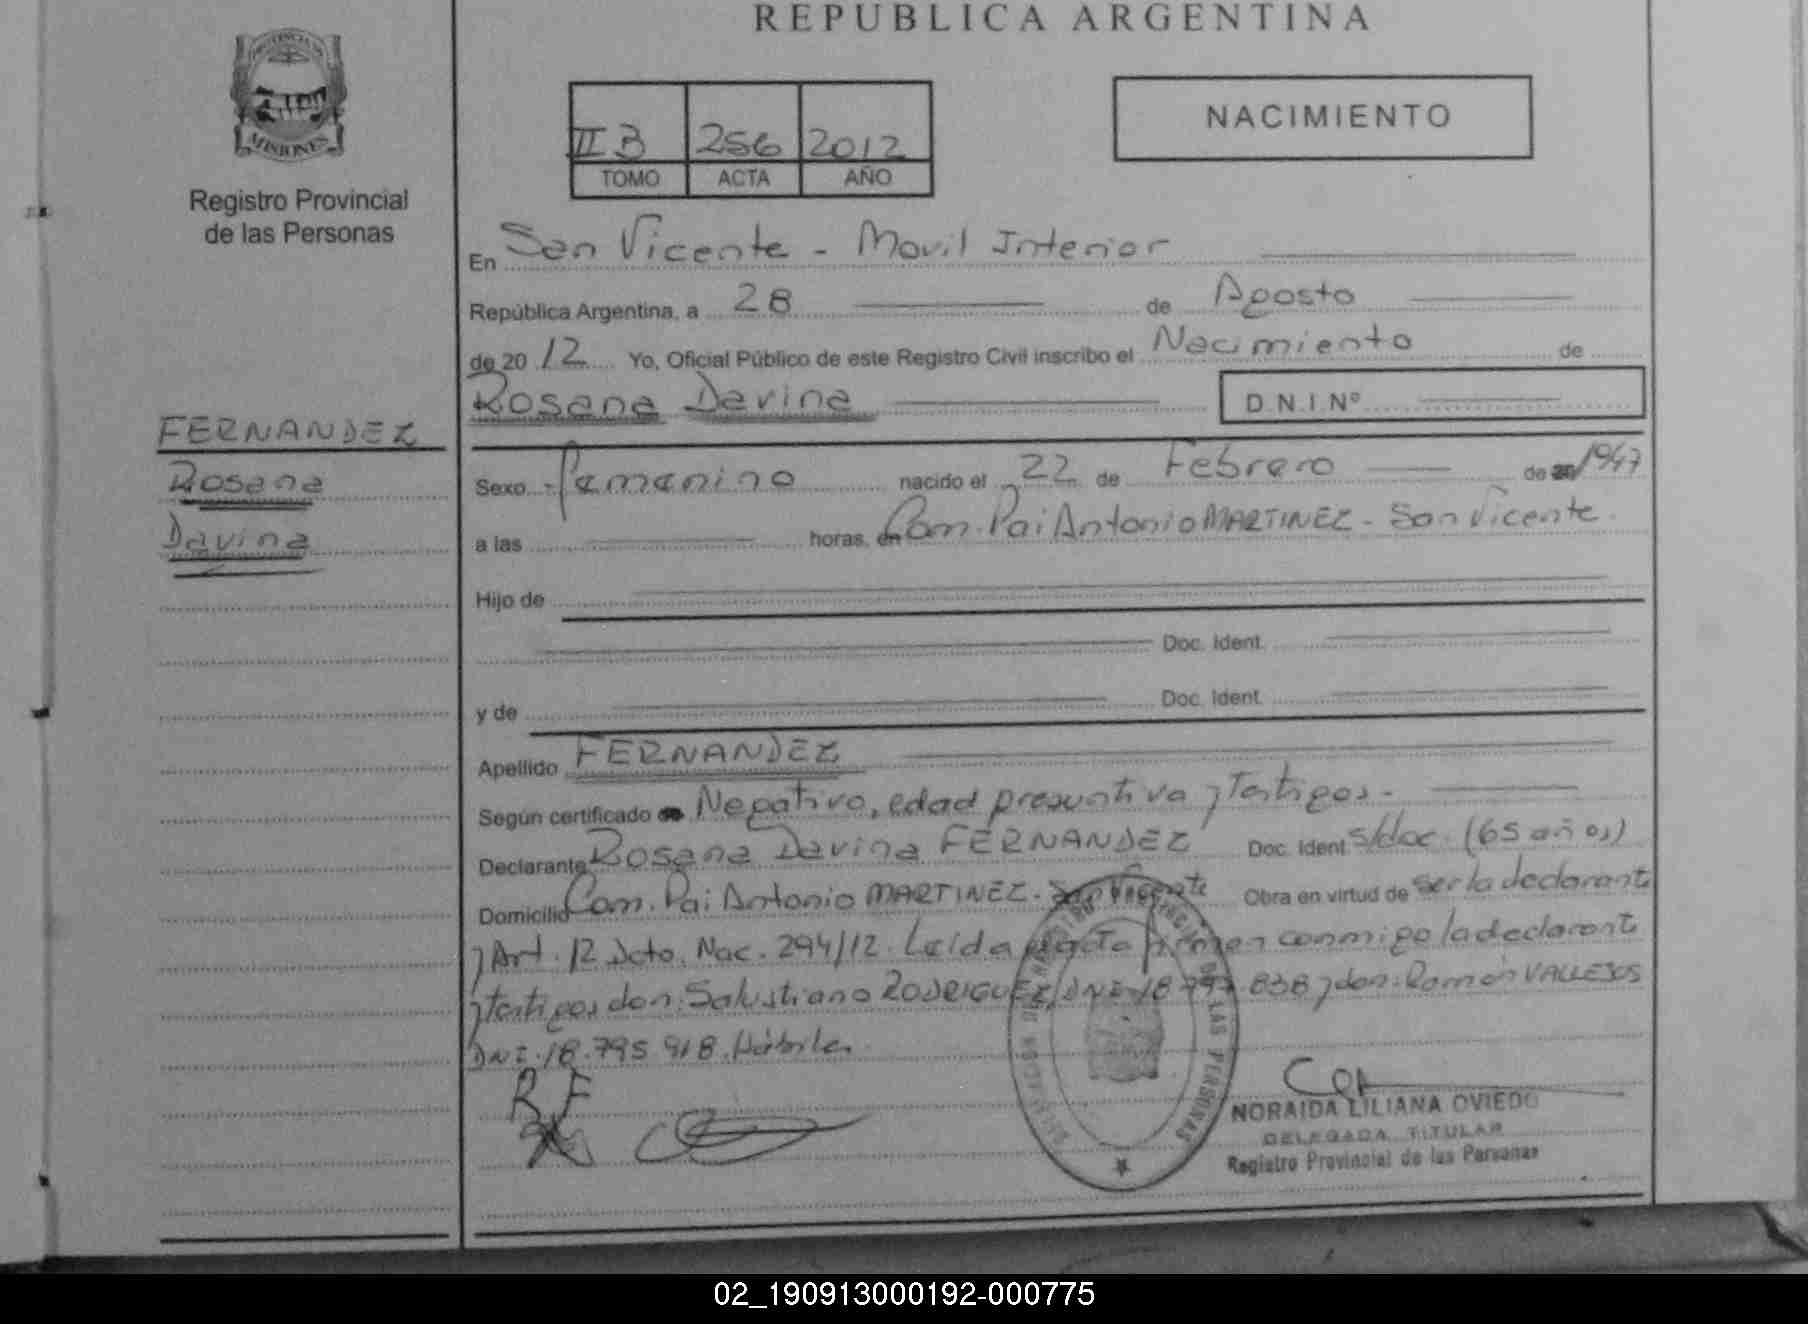 REPUBLICA ARGENTINA
PROVINCIA DE
MISIONES
Registro Provincial
de las Personas
II B 256 2012
TOMO ACTA AÑO
NACIMIENTO
En San Vicente - Movil Interior
República Argentina, a 28 de Agosto
de 2012 Yo, Oficial Público de este Registro Civil inscribo el Nacimiento de
Rosana Davina D.N.I.Nº
FERNANDEZ
Rosana
Davina
Sexo femenino nacido el 22 de Febrero de 1947
a las horas, en Com. Pai Antonio MARTINEZ - San Vicente.
Hijo de
Doc. Ident.
y de Doc. Ident.
Apellido FERNANDEZ
Según certificado Negativo, edad presuntiva y Testigos.-
Declarante Rosana Davina FERNANDEZ Doc. Ident. s/doc. (65 años)
Domicilio Com. Pai Antonio MARTINEZ - San Vicente Obra en virtud de ser la declarante
y Art. 12 Dcto. Nac. 294/12. Leída el acta firman conmigo la declarante
y testigos don: Salustiano RODRIGUEZ, DNI 18.797.838 y don: Ramón VALLEJOS
DNI. 18.795.918. Hábiles
R F
NORAIDA LILIANA OVIEDO
DELEGADA TITULAR
Registro Provincial de las Personas
02_190913000192-000775